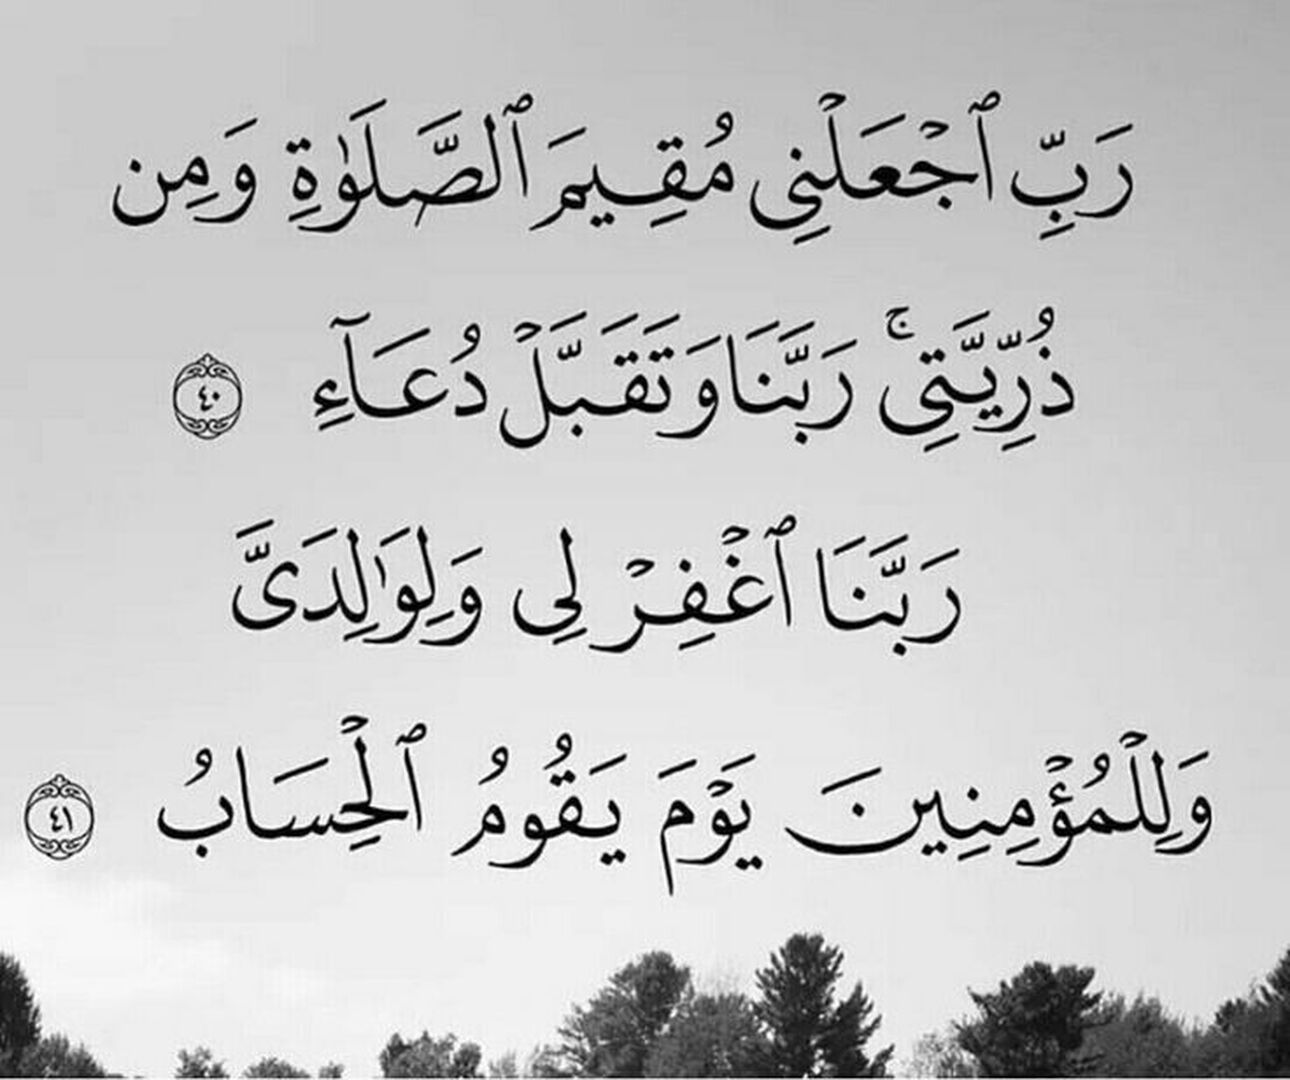 رَبِّ ٱجۡعَلۡنِي مُقِيمَ ٱلصَّلَوٰةِ وَمِن
ذُرِّيَّتِيۚ رَبَّنَا وَتَقَبَّلۡ دُعَآءِ ٤٠
رَبَّنَا ٱغۡفِرۡ لِي وَلِوَٰلِدَيَّ
وَلِلۡمُؤۡمِنِينَ يَوۡمَ يَقُومُ ٱلۡحِسَابُ ٤١